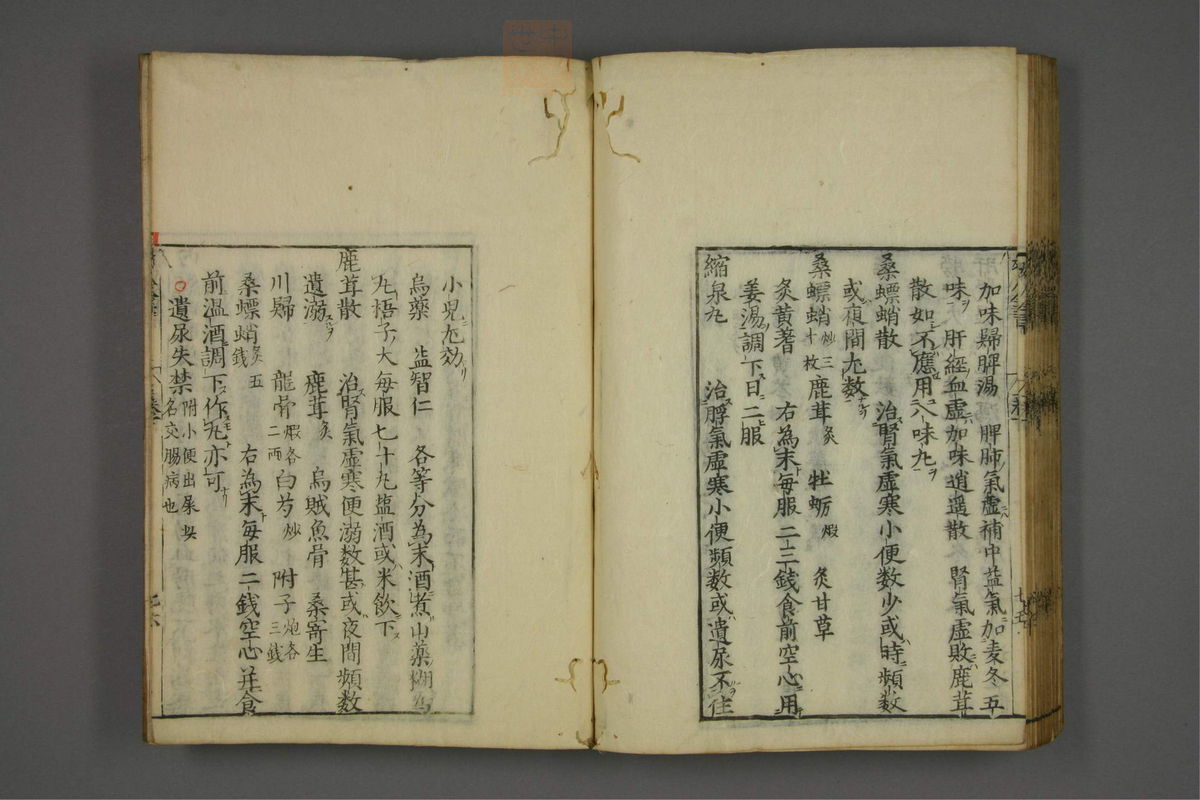 加味歸脾湯　脾肺氣虛補中益氣加麦冬五
味　肝經血虛加味逍遥散　腎氣虛敗鹿茸
散如不應用八味丸
桑螵蛸散　治腎氣虛寒小便数少或時頻数
或夜間尤数
桑螵蛸炒三十枚　鹿茸炙　牡蛎煅　炙甘草
炙黄蓍　右為末毎服二三錢食前空心用
姜湯調下日二服
縮泉丸　治脬氣虛寒小便頻数或遺尿不住
小兒尤効
烏藥　益智仁　各等分為末酒煮山藥糊為
丸梧子大毎服七十丸盐酒或米飲下
鹿茸散　治腎氣虛寒便溺数甚或夜間頻数
遺溺　鹿茸炙　烏賊魚骨　桑寄生
川歸　龍骨煅各二両　白芍炒　附子炮各三錢
桑螵蛸炙五錢　右為末毎服二錢空心并食
前温酒調下作丸亦可
遺尿失禁　附小便出屎
名交腸病也